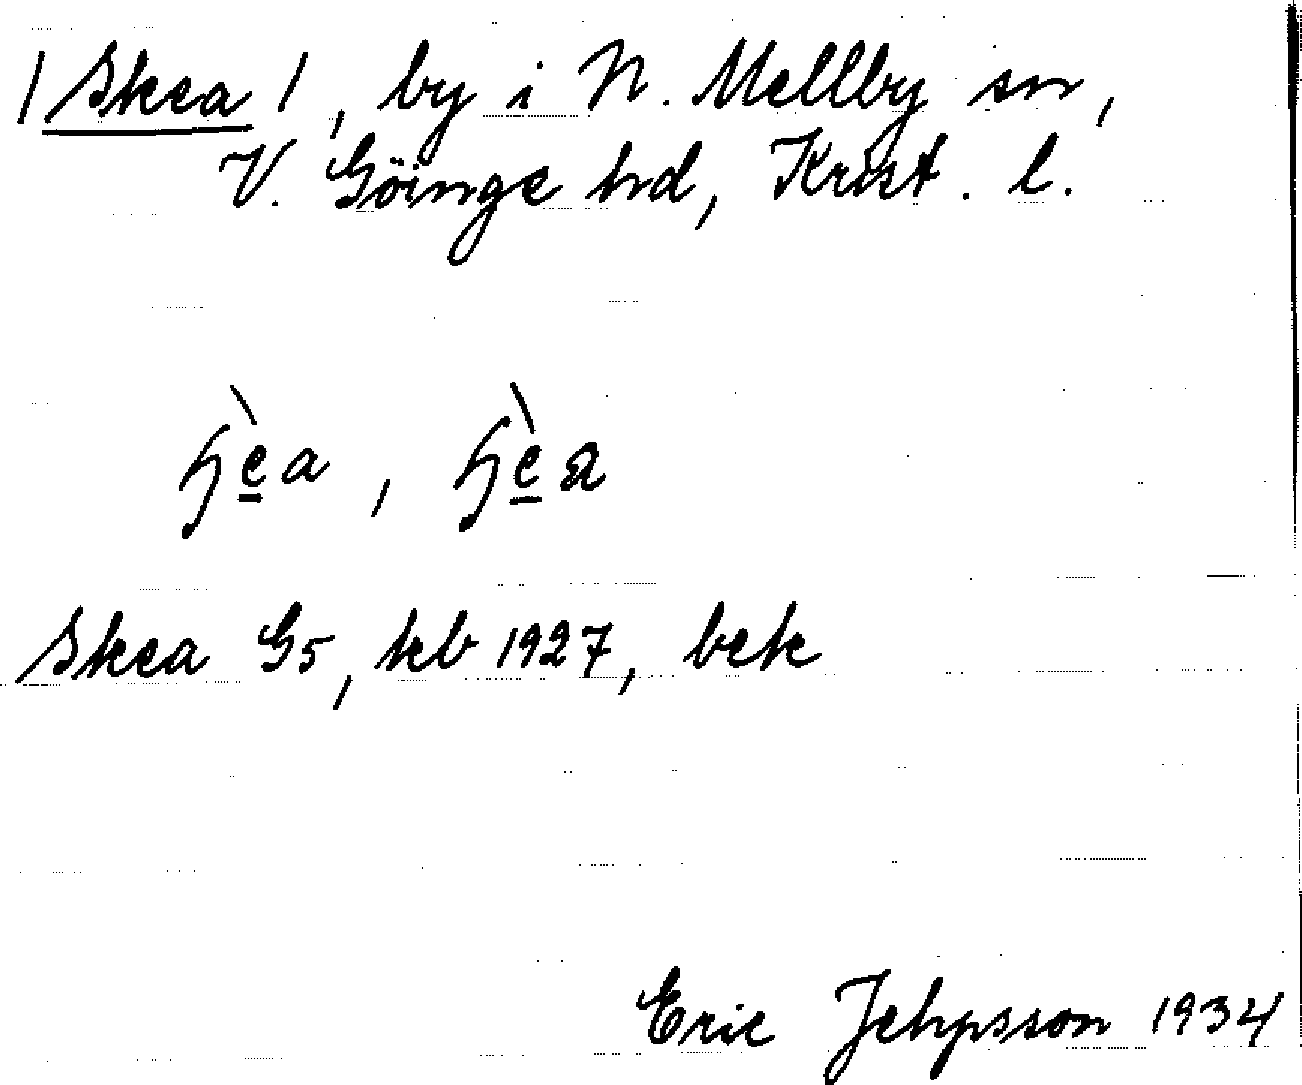 /Skea/, by i N. Mellby sn,
V. Göinge hrd, Krist. l.
Skea G5, kb 1927, bek
Eric Jehpsson 1934